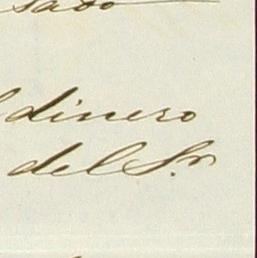 sado
l dinero
del Sr